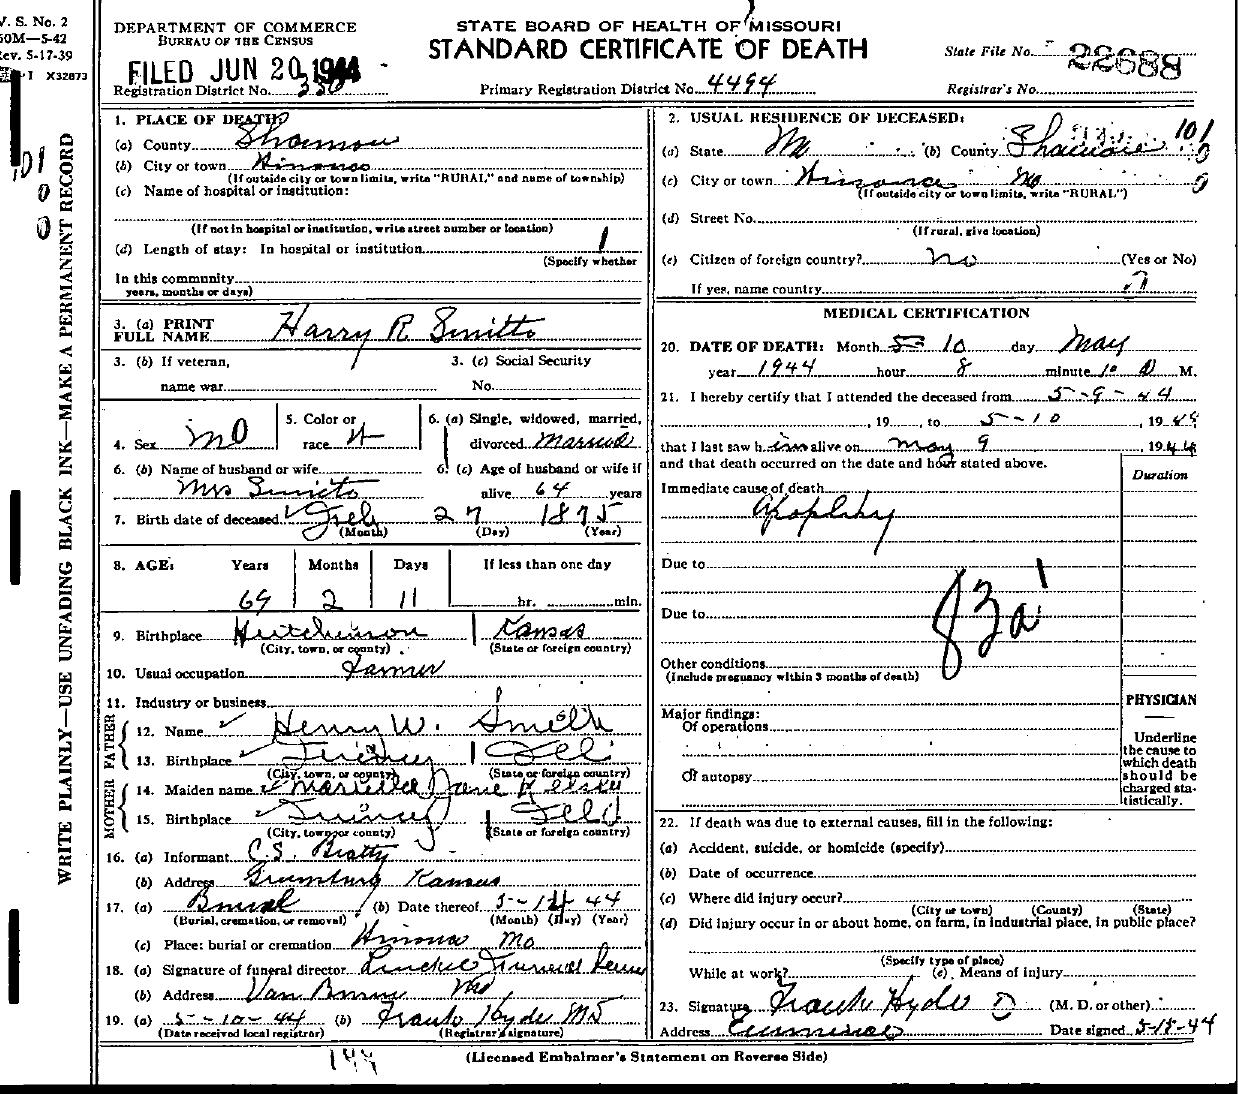 V. S. No. 2
50M—5-42
Rev. 5-17-39
I X32873
DEPARTMENT OF COMMERCE
BUREAU OF THE CENSUS
FILED JUN 20 1944
Registration District No.
STATE BOARD OF HEALTH OF MISSOURI
STANDARD CERTIFICATE OF DEATH
Primary Registration District No. 4494
State File No. 22688
Registrar's No.
WRITE PLAINLY—USE UNFADING BLACK INK—MAKE A PERMANENT RECORD
1. PLACE OF DEATH:
(a) County Shannon
(b) City or town Winona
(If outside city or town limits, write "RURAL," and name of township)
(c) Name of hospital or institution:
(If not in hospital or institution, write street number or location)
(d) Length of stay: In hospital or institution
(Specify whether
In this community
years, months or days)
3. (a) PRINT FULL NAME Harry R Smith
3. (b) If veteran, name war
3. (c) Social Security No.
4. Sex M
5. Color or race W
6. (a) Single, widowed, married, divorced Married
6. (b) Name of husband or wife Mrs Smith
6. (c) Age of husband or wife if alive 64 years
7. Birth date of deceased Feb 27 1875
(Month) (Day) (Year)
8. AGE: Years Months Days If less than one day
69 2 11 hr. min.
9. Birthplace Hutchinson Kansas
(City, town, or county) (State or foreign country)
10. Usual occupation Farmer
11. Industry or business
FATHER
12. Name Henry W. Smith
13. Birthplace Quincy Ill
(City, town, or county) (State or foreign country)
MOTHER
14. Maiden name Jane
15. Birthplace Quincy Ill
(City, town, or county) (State or foreign country)
16. (a) Informant C.S. Beatty
(b) Address Greensburg Kansas
17. (a) Burial (b) Date thereof 5-12 44
(Burial, cremation, or removal) (Month) (Day) (Year)
(c) Place: burial or cremation Winona Mo
18. (a) Signature of funeral director Funeral
(b) Address Van Buren Mo
19. (a) 5-10-44 (b) Frank Hyde MD
(Date received local registrar) (Registrar's signature)
2. USUAL RESIDENCE OF DECEASED:
101
(a) State Mo (b) County Shannon
(c) City or town Winona Mo
(If outside city or town limits, write "RURAL")
(d) Street No.
(If rural, give location)
(e) Citizen of foreign country? no (Yes or No)
If yes, name country
MEDICAL CERTIFICATION
20. DATE OF DEATH: Month 5 10 day May
year 1944 hour 8 minute 10 M.
21. I hereby certify that I attended the deceased from 5-9-44
, 19 , to 5-10 , 1944
that I last saw him alive on May 9 , 1944
and that death occurred on the date and hour stated above.
Duration
Immediate cause of death
Apoplexy
Due to
Due to
83a
Other conditions
(Include pregnancy within 3 months of death)
Major findings:
Of operations
Of autopsy
PHYSICIAN
Underline the cause to which death should be charged statistically.
22. If death was due to external causes, fill in the following:
(a) Accident, suicide, or homicide (specify)
(b) Date of occurrence
(c) Where did injury occur?
(City or town) (County) (State)
(d) Did injury occur in or about home, on farm, in industrial place, in public place?
(Specify type of place)
While at work? (e) Means of injury
23. Signature Frank Hyde (M. D. or other)
Address Eminence Date signed 5-18-44
(Licensed Embalmer's Statement on Reverse Side)